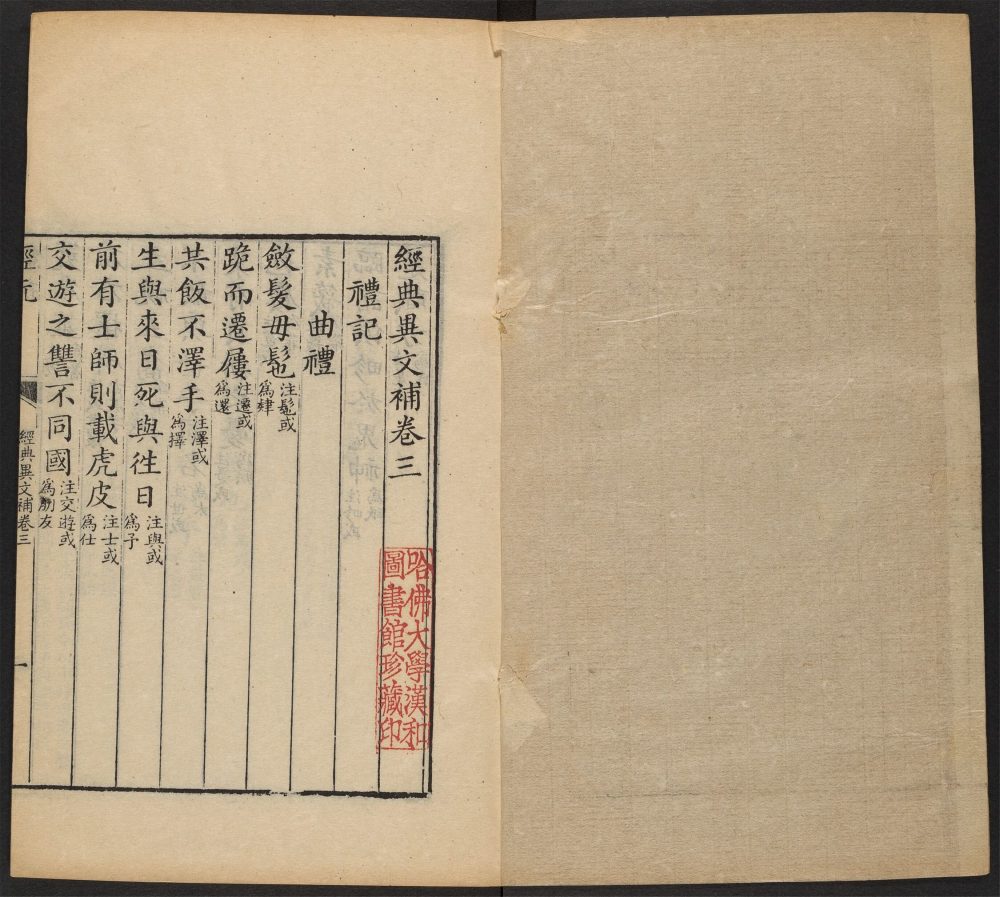 經典異文補卷三
禮記
曲禮
斂髮毋髢注髢或爲肄
跪而遷屨注遷或爲還
共飯不澤手注澤或爲擇
生與來日死與徃日注與或爲予
前有士師則載虎皮注士或爲仕
交遊之讐不同國注交遊或爲朋友
經典異文補卷三
一
哈佛大學漢和
圖書館珍藏印